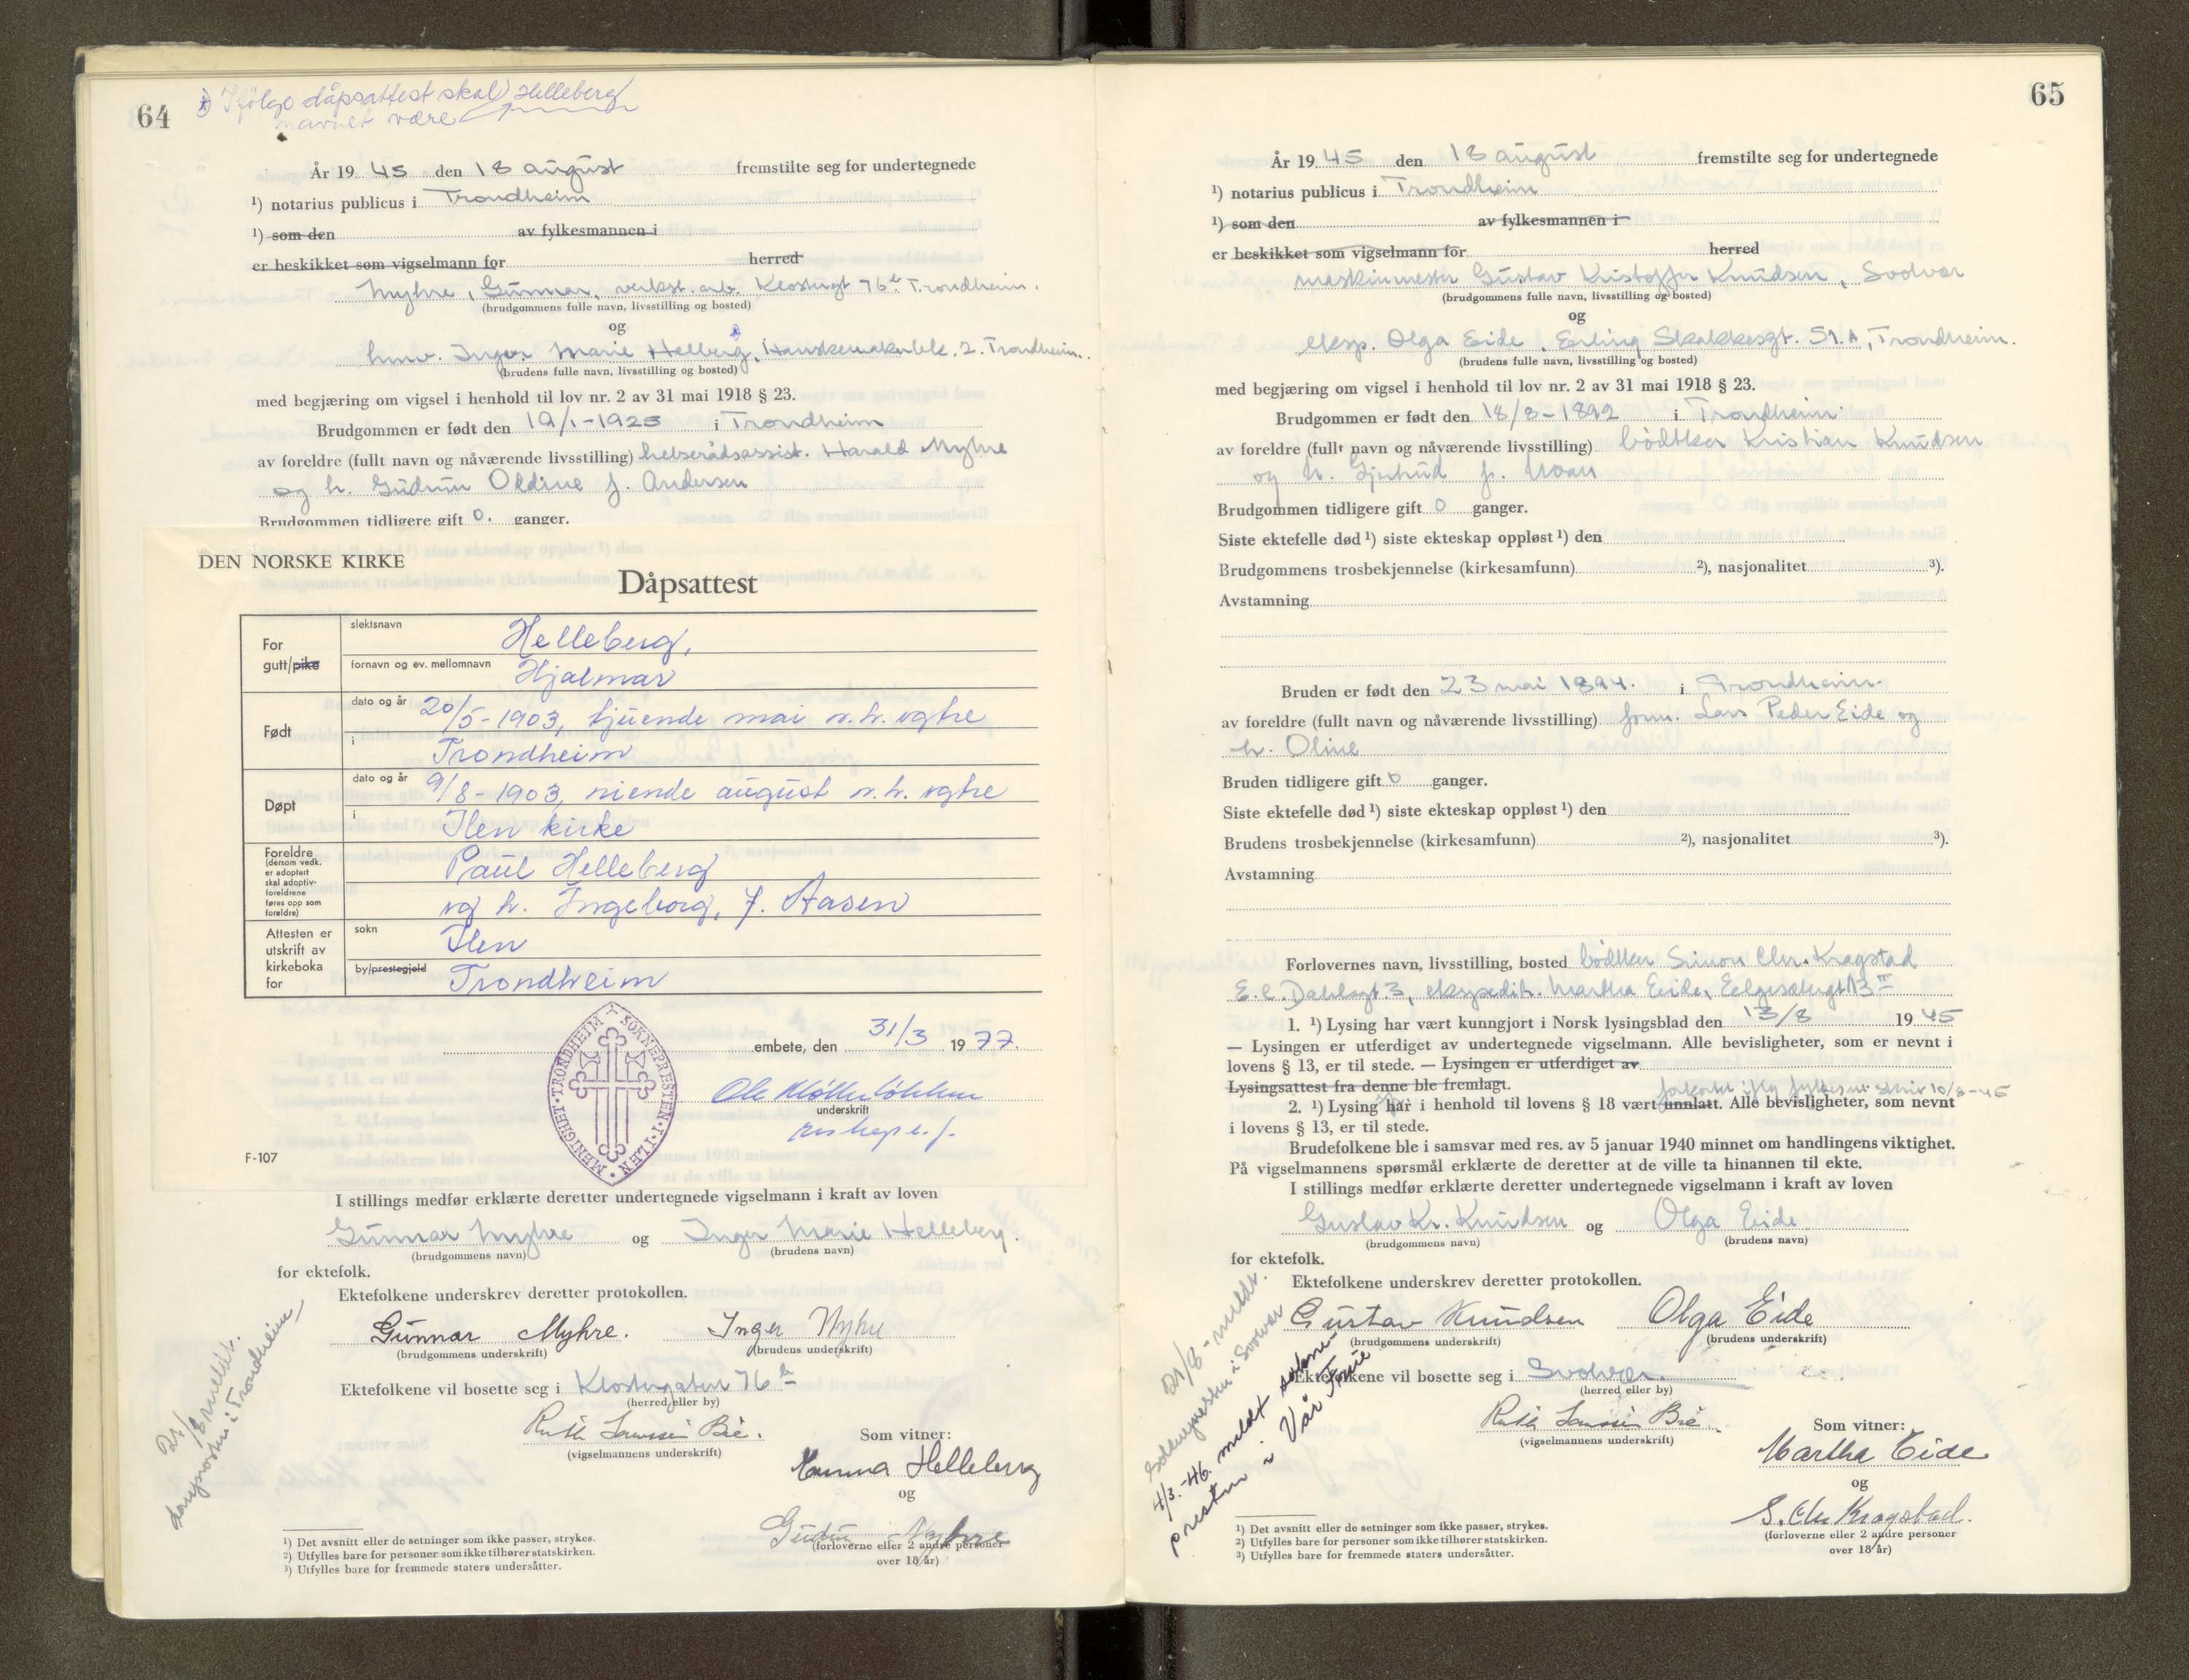 64
*) Ifølge dåpsattest skal Helleberg
navnet være
År 19 45 den 18 august fremstilte seg for undertegnede
¹) notarius publicus i Trondheim
¹) som den av fylkesmannen i
er beskikket som vigselmann for herred
Myhre, Gunnar, verkst. arb. Klostergt 76 b Trondheim.
(brudgommens fulle navn, livsstilling og bosted)
og
hmv. Inger Marie Helberg, Hanskemakerbk. 2. Trondheim.
(brudens fulle navn, livsstilling og bosted)
med begjæring om vigsel i henhold til lov nr. 2 av 31 mai 1918 § 23.
Brudgommen er født den 19/1-1923 i Trondheim
av foreldre (fullt navn og nåværende livsstilling) helserådsassist. Harald Myhre
og h. Gudrun Oldine f. Andersen
Brudgommen tidligere gift 0. ganger.
DEN NORSKE KIRKE
Dåpsattest
For gutt/pike
slektsnavn Helleberg,
fornavn og ev. mellomnavn Hjalmar
Født
dato og år 20/5-1903, tjuende mai n.h. og tre
i Trondheim
Døpt
dato og år 9/8-1903, niende august n.h. og tre
i Ilen kirke
Foreldre
(dersom vedk.
er adoptert
skal adoptiv-
foreldrene
føres opp som
foreldre)
Paul Helleberg
og h. Ingeborg, f. Aasen
Attesten er
utskrift av
kirkeboka
for
sokn Ilen
by/prestegjeld Trondheim
embete, den 31/3 1977.
SOKNEPRESTEN I ILEN MENIGHET TRONDHEIM
underskrift
F-107
I stillings medfør erklærte deretter undertegnede vigselmann i kraft av loven
Gunnar Myhre og Inger Marie Helleberg.
(brudgommens navn) (brudens navn)
for ektefolk.
Ektefolkene underskrev deretter protokollen.
Gunnar Myhre. Inger Myhre
(brudgommens underskrift) (brudens underskrift)
Ektefolkene vil bosette seg i Klostergaten 76 b
(herred eller by)
Ruth Bie.
(vigselmannens underskrift)
Som vitner:
Emma Helleberg
og
Gudrun Myhre
(forloverne eller 2 andre personer
over 18 år)
21/8 meldt.
i Trondheim
¹) Det avsnitt eller de setninger som ikke passer, strykes.
²) Utfylles bare for personer som ikke tilhører statskirken.
³) Utfylles bare for fremmede staters undersåtter.
65
År 19 45 den 18 august fremstilte seg for undertegnede
¹) notarius publicus i Trondheim
¹) som den av fylkesmannen i
er beskikket som vigselmann for herred
maskinmester Gustav Kristoffer Knudsen, Svolvær
(brudgommens fulle navn, livsstilling og bosted)
og
eksp. Olga Eide, Erling Skakkesgt. 51.A, Trondheim.
(brudens fulle navn, livsstilling og bosted)
med begjæring om vigsel i henhold til lov nr. 2 av 31 mai 1918 § 23.
Brudgommen er født den 18/8-1892 i Trondheim
av foreldre (fullt navn og nåværende livsstilling) bødtker Kristian Knudsen
og h. Gjertrud f. Moan
Brudgommen tidligere gift 0 ganger.
Siste ektefelle død ¹) siste ekteskap oppløst ¹) den
Brudgommens trosbekjennelse (kirkesamfunn) ²), nasjonalitet ³).
Avstamning
Bruden er født den 23 mai 1894. i Trondheim.
av foreldre (fullt navn og nåværende livsstilling) form. Lars Peder Eide og
h. Oline
Bruden tidligere gift 0 ganger.
Siste ektefelle død ¹) siste ekteskap oppløst ¹) den
Brudens trosbekjennelse (kirkesamfunn) ²), nasjonalitet ³).
Avstamning
Forlovernes navn, livsstilling, bosted bødtker Simon Chr. Kragstad
E.C. Dahlsgt. 3, ekspedit. Martha Eide, Eelgesætergt 13 II
1. ¹) Lysing har vært kunngjort i Norsk lysingsblad den 13/8 19 45
— Lysingen er utferdiget av undertegnede vigselmann. Alle bevisligheter, som er nevnt i
lovens § 13, er til stede. — Lysingen er utferdiget av
Lysingsattest fra denne ble fremlagt.
forkortet iflg. fylkesm. skriv 10/8-45
2. ¹) Lysing har i henhold til lovens § 18 vært unnlatt. Alle bevisligheter, som nevnt
i lovens § 13, er til stede.
Brudefolkene ble i samsvar med res. av 5 januar 1940 minnet om handlingens viktighet.
På vigselmannens spørsmål erklærte de deretter at de ville ta hinannen til ekte.
I stillings medfør erklærte deretter undertegnede vigselmann i kraft av loven
Gustav Kr. Knudsen og Olga Eide
(brudgommens navn) (brudens navn)
for ektefolk.
Ektefolkene underskrev deretter protokollen.
Gustav Knudsen Olga Eide
(brudgommens underskrift) (brudens underskrift)
Ektefolkene vil bosette seg i Svolvær.
(herred eller by)
Ruth Bie
(vigselmannens underskrift)
Som vitner:
Martha Eide
og
S. Chr Kragstad.
(forloverne eller 2 andre personer
over 18 år)
21/8 meldt.
Soknepresten i Svolvær
4/3.-46. meldt sokne-
presten i Vår Frue
¹) Det avsnitt eller de setninger som ikke passer, strykes.
²) Utfylles bare for personer som ikke tilhører statskirken.
³) Utfylles bare for fremmede staters undersåtter.